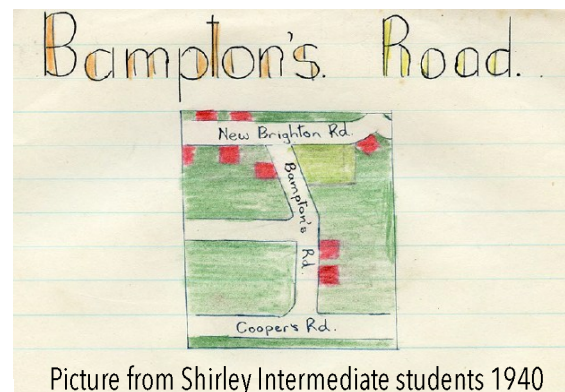 Bampton's. Road.
New Brighton Rd.
Bampton's Rd.
Cooper's Rd.
Picture from Shirley Intermediate students 1940